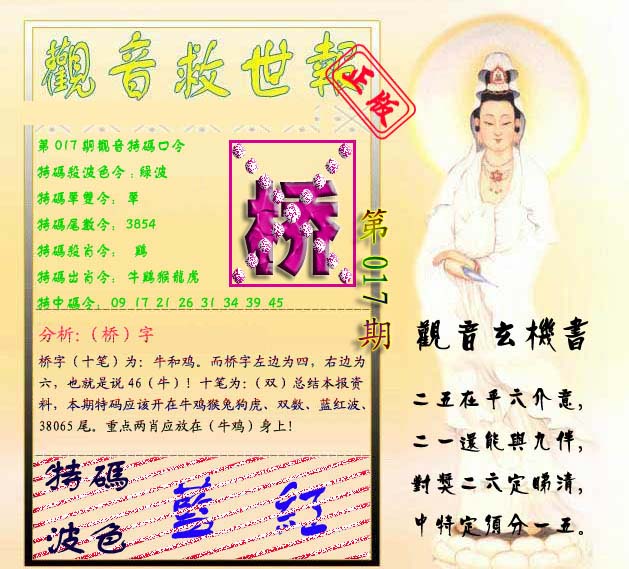 觀音救世報
正版
第017期觀音特碼口令
特碼殺波色令：綠波
特碼單雙令： 單
特碼尾數令： 3854
特碼殺肖令： 鷄
特碼出肖令： 牛鷄猴龍虎
特中碼令： 09 17 21 26 31 34 39 45
桥
第017期
分析：（桥）字
桥字（十笔）为：牛和鸡。而桥字左边为四，右边为
六，也就是说46（牛）！十笔为：（双）总结本报资
料，本期特码应该开在牛鸡猴兔狗虎、双数、蓝红波、
38065尾。重点两肖应放在（牛鸡）身上！
特碼
波色
藍 紅
觀音玄機書
二五在平六介意，
二一還能與九伴，
對獎二六定睇清，
中特定須分一五。